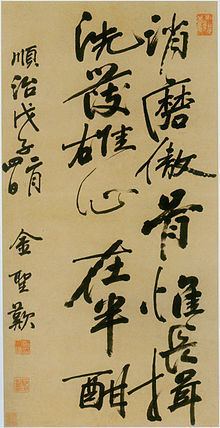 消磨傲骨惟長揖
洗發雄心在半酣
順治戊子二月四日
金聖歎